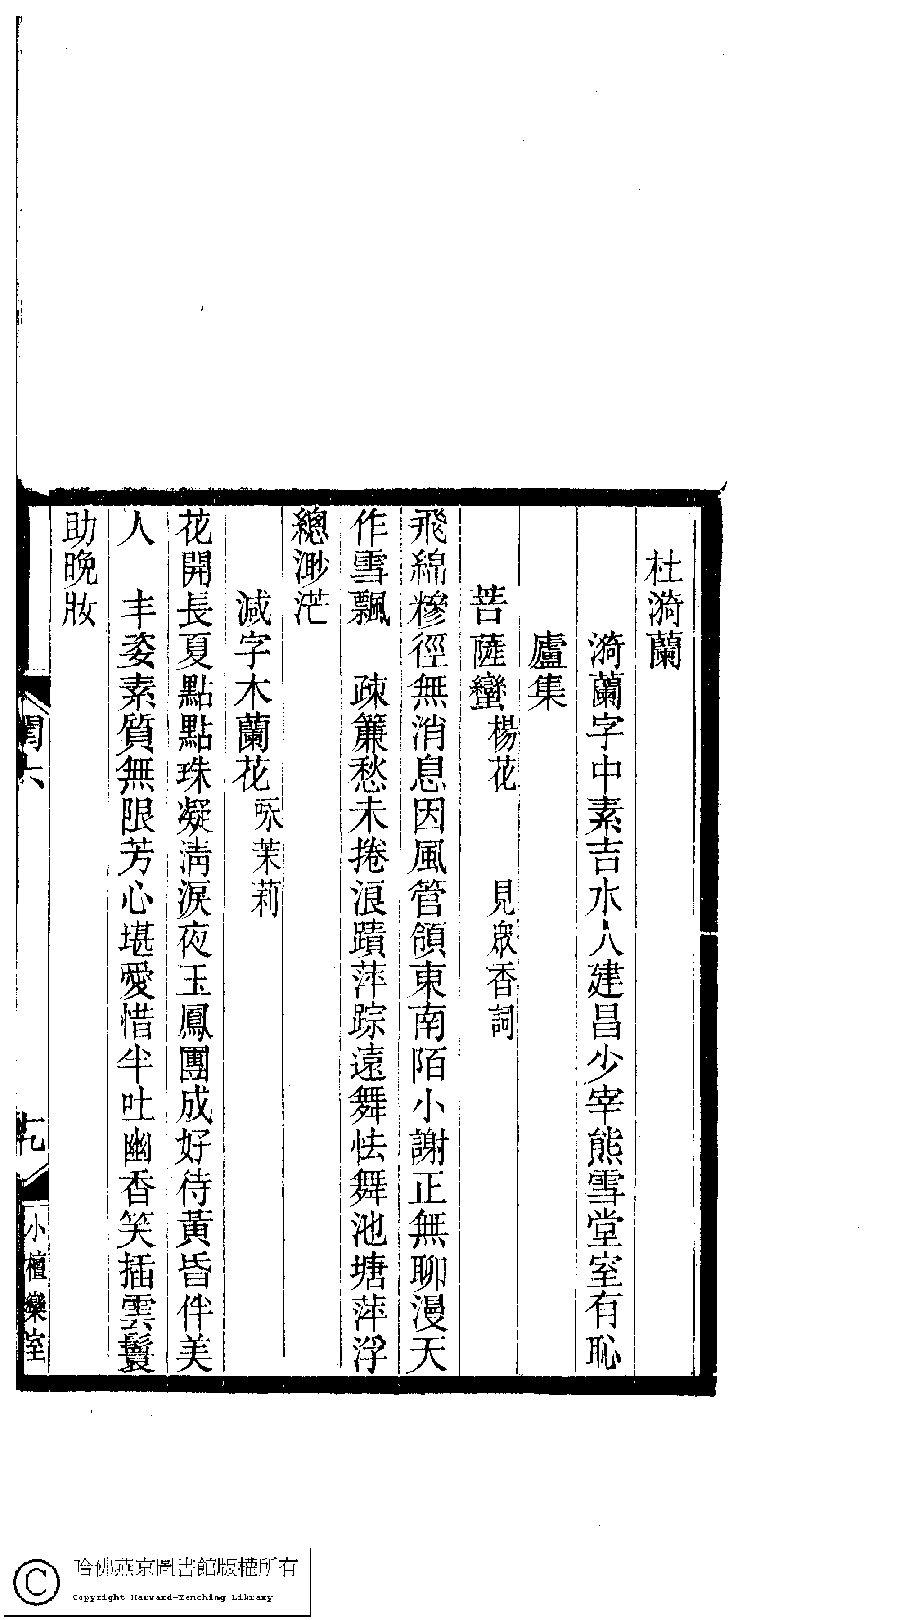 杜漪蘭
漪蘭字中素吉水人建昌少宰熊雪堂室有恥
廬集
菩薩蠻 楊花 見衆香詞
飛綿糝徑無消息因風管領東南陌小謝正無聊漫天
作雪飄 疎簾愁未捲浪蹟萍踪遠舞怯舞池塘萍浮
總渺茫
減字木蘭花 咏茉莉
花開長夏點點珠凝淸淚夜玉鳳團成好待黃昏伴美
人 丰姿素質無限芳心堪愛惜半吐幽香笑插雲鬟
助晚妝
閏六
小檀欒室
哈佛燕京圖書館版權所有
Copyright Harvard-Yenching Library